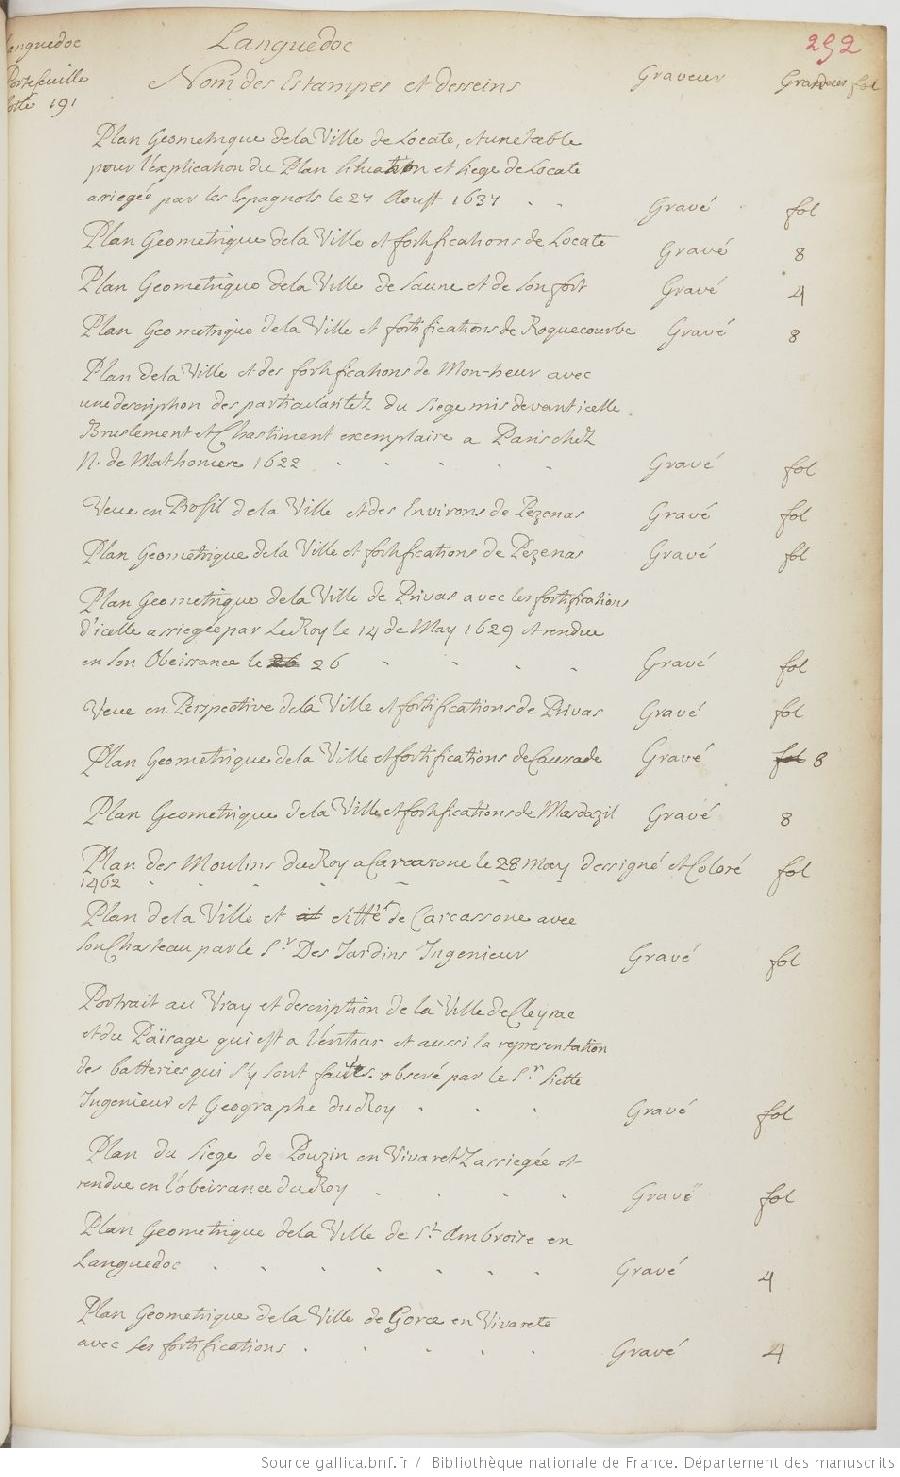 Languedoc
Portefeuille
cotté 191
Languedoc
292
Nom des Estampes et desseins Graveur Grandeur fol
Plan Geometrique de la Ville de Locate, et une table
pour l'explication du Plan situation et siege de Locate
assiegée par les Espagnols le 27 Aoust 1637 Gravé fol
Plan Geometrique de la Ville et fortifications de Locate Gravé 8
Plan Geometrique de la Ville de Saune et de son fort Gravé 4
Plan Geometrique de la Ville et fortifications de Roquecourbe Gravé 8
Plan de la Ville et des fortifications de Mon-heur avec
une description des particularitez du siege mis devant icelle
Bruslement et Chastiment exemplaire a Paris chez
N. de Mathoniere 1622 Gravé fol
Veue en Profil de la Ville et des Environs de Pezenas Gravé fol
Plan Geometrique de la Ville et fortifications de Pezenas Gravé fol
Plan Geometrique de la Ville de Privas avec les fortifications
d'icelle assiegée par Le Roy le 14 de May 1629 et rendue
en son Obeissance le 26 26 Gravé fol
Veue en Perspective de la Ville et fortifications de Privas Gravé fol
Plan Geometrique de la Ville et fortifications de Caussade Gravé fol 8
Plan Geometrique de la Ville et fortifications de Masdazil Gravé 8
Plan des Moulins du Roy a Carcasone le 28 may dessigné et Coloré fol
1462
Plan de la Ville et cité de Carcassone avec
son Chasteau par le Sr Des Jardins Ingenieur Gravé fol
Portrait au Vray et description de la Ville de Cleyrac
et du Païsage qui est a l'entour et aussi la representation
des batteries qui s'y sont faites observé par le Sr
Ingenieur et Geographe du Roy Gravé fol
Plan du siege de Pouzin en Vivaretz assiegée et
rendue en l'obeissance du Roy Gravé fol
Plan Geometrique de la Ville de St Ambroise en
Languedoc Gravé 4
Plan Geometrique de la Ville de Gorce en Vivarets
avec ses fortifications Gravé 4
Source gallica.bnf.fr / Bibliothèque nationale de France. Département des manuscrits